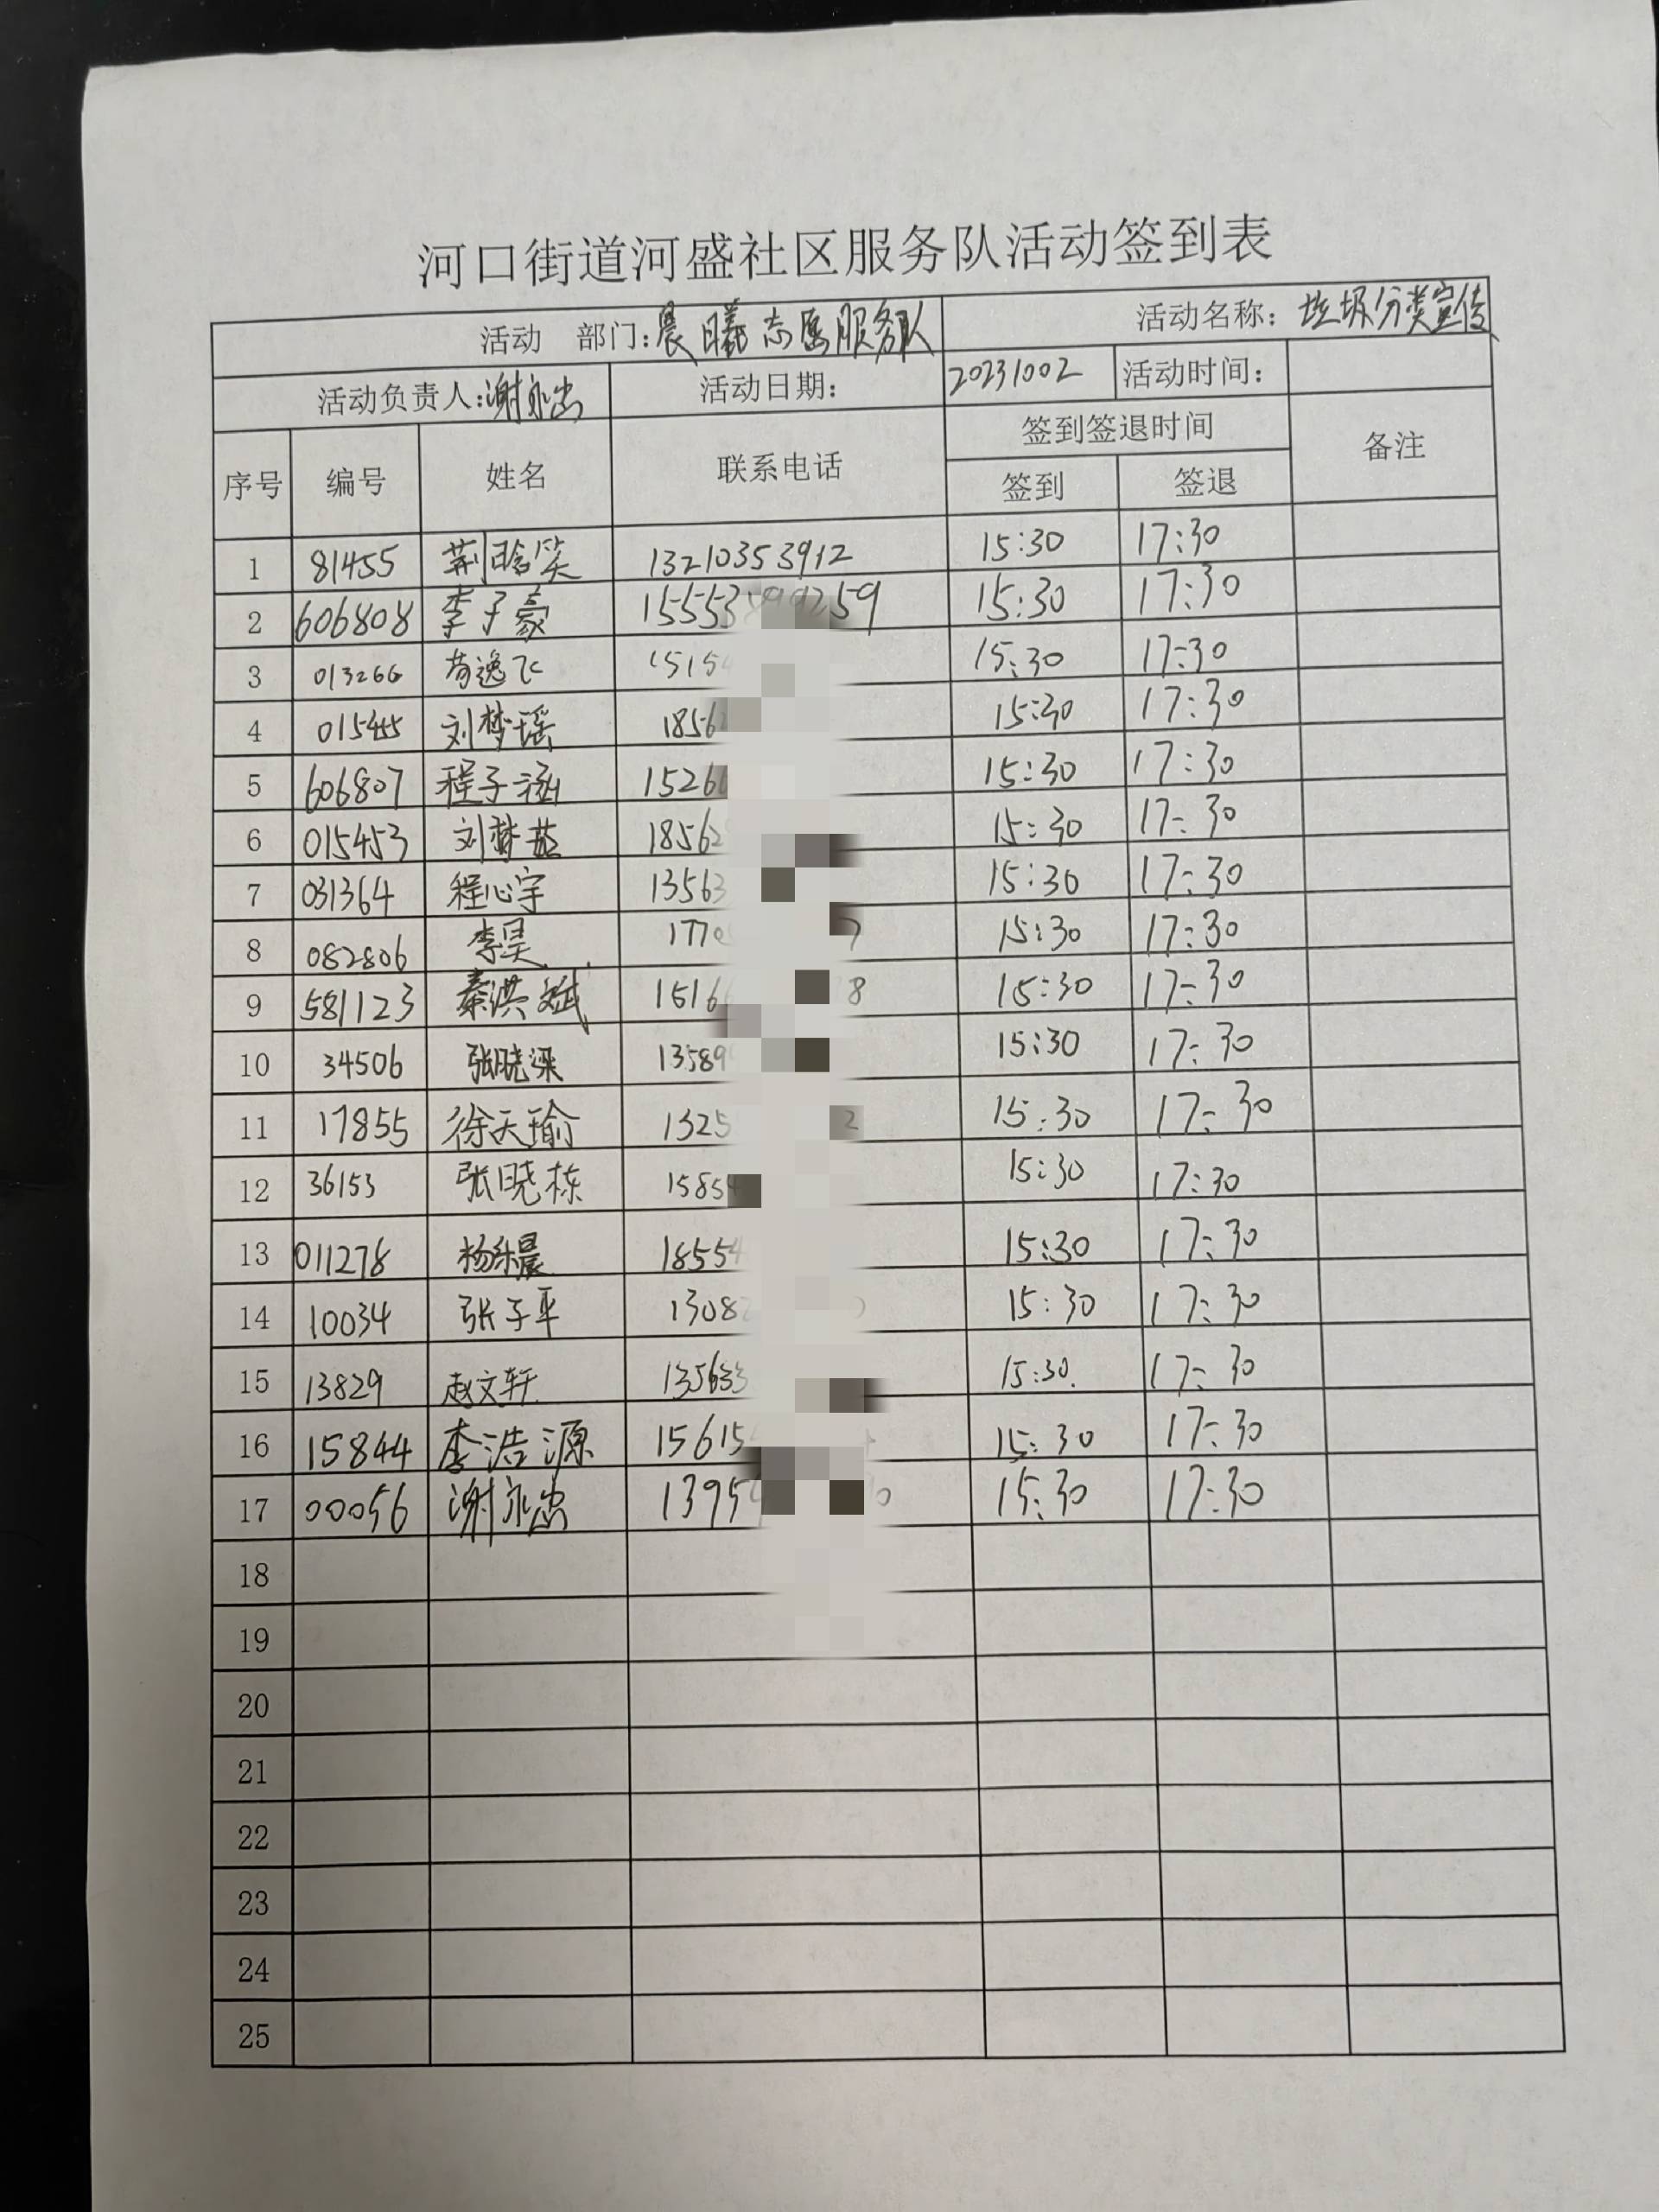 河口街道河盛社区服务队活动签到表
活动 部门: 晨曦志愿服务队 活动名称: 垃圾分类宣传
活动负责人: 谢永忠 活动日期: 20231002 活动时间:
序号 编号 姓名 联系电话 签到签退时间 备注
签到 签退
1 81455 荆晗笑 13210353912 15:30 17:30
2 606808 李子豪 15553 259 15:30 17:30
3 013266 苟逸飞 1515 15:30 17:30
4 015455 刘梦瑶 1856 15:30 17:30
5 606807 程子涵 1526 15:30 17:30
6 015453 刘梦茹 1856 15:30 17:30
7 031364 程心宇 1356 15:30 17:30
8 082806 李昊 177 15:30 17:30
9 581123 秦洪斌 1516 8 15:30 17:30
10 34506 张晓梁 13589 15:30 17:30
11 17855 徐天瑜 1325 2 15:30 17:30
12 36153 张晓栋 1585 15:30 17:30
13 011278 杨乐晨 1855 15:30 17:30
14 10034 张子平 1308 15:30 17:30
15 13829 赵文轩 13563 15:30 17:30
16 15844 李浩源 15615 15:30 17:30
17 00056 谢永忠 1395 15:30 17:30
18
19
20
21
22
23
24
25